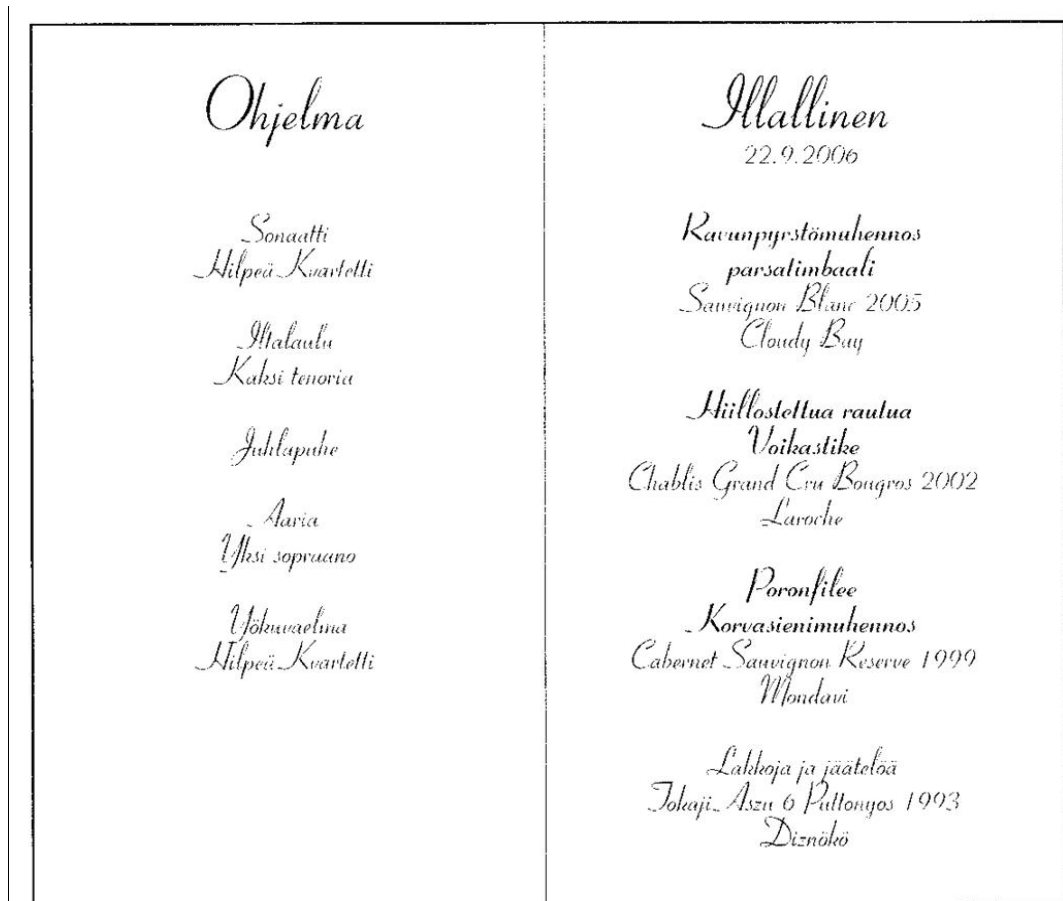 Ohjelma
Sonaatti
Hilpeä Kvartetti
Iltalaulu
Kaksi tenoria
Juhlapuhe
Aaria
Yksi sopraano
Yökuvaelma
Hilpeä Kvartetti
Illallinen
22.9.2006
Ravunpyrstömuhennos
parsatimbaali
Sauvignon Blanc 2005
Cloudy Bay
Hiillostettua rautua
Voikastike
Chablis Grand Cru Bougros 2002
Laroche
Poronfilee
Korvasienimuhennos
Cabernet Sauvignon Reserve 1999
Mondavi
Lakkoja ja jäätelöä
Tokaji Aszu 6 Puttonyos 1993
Diznökö